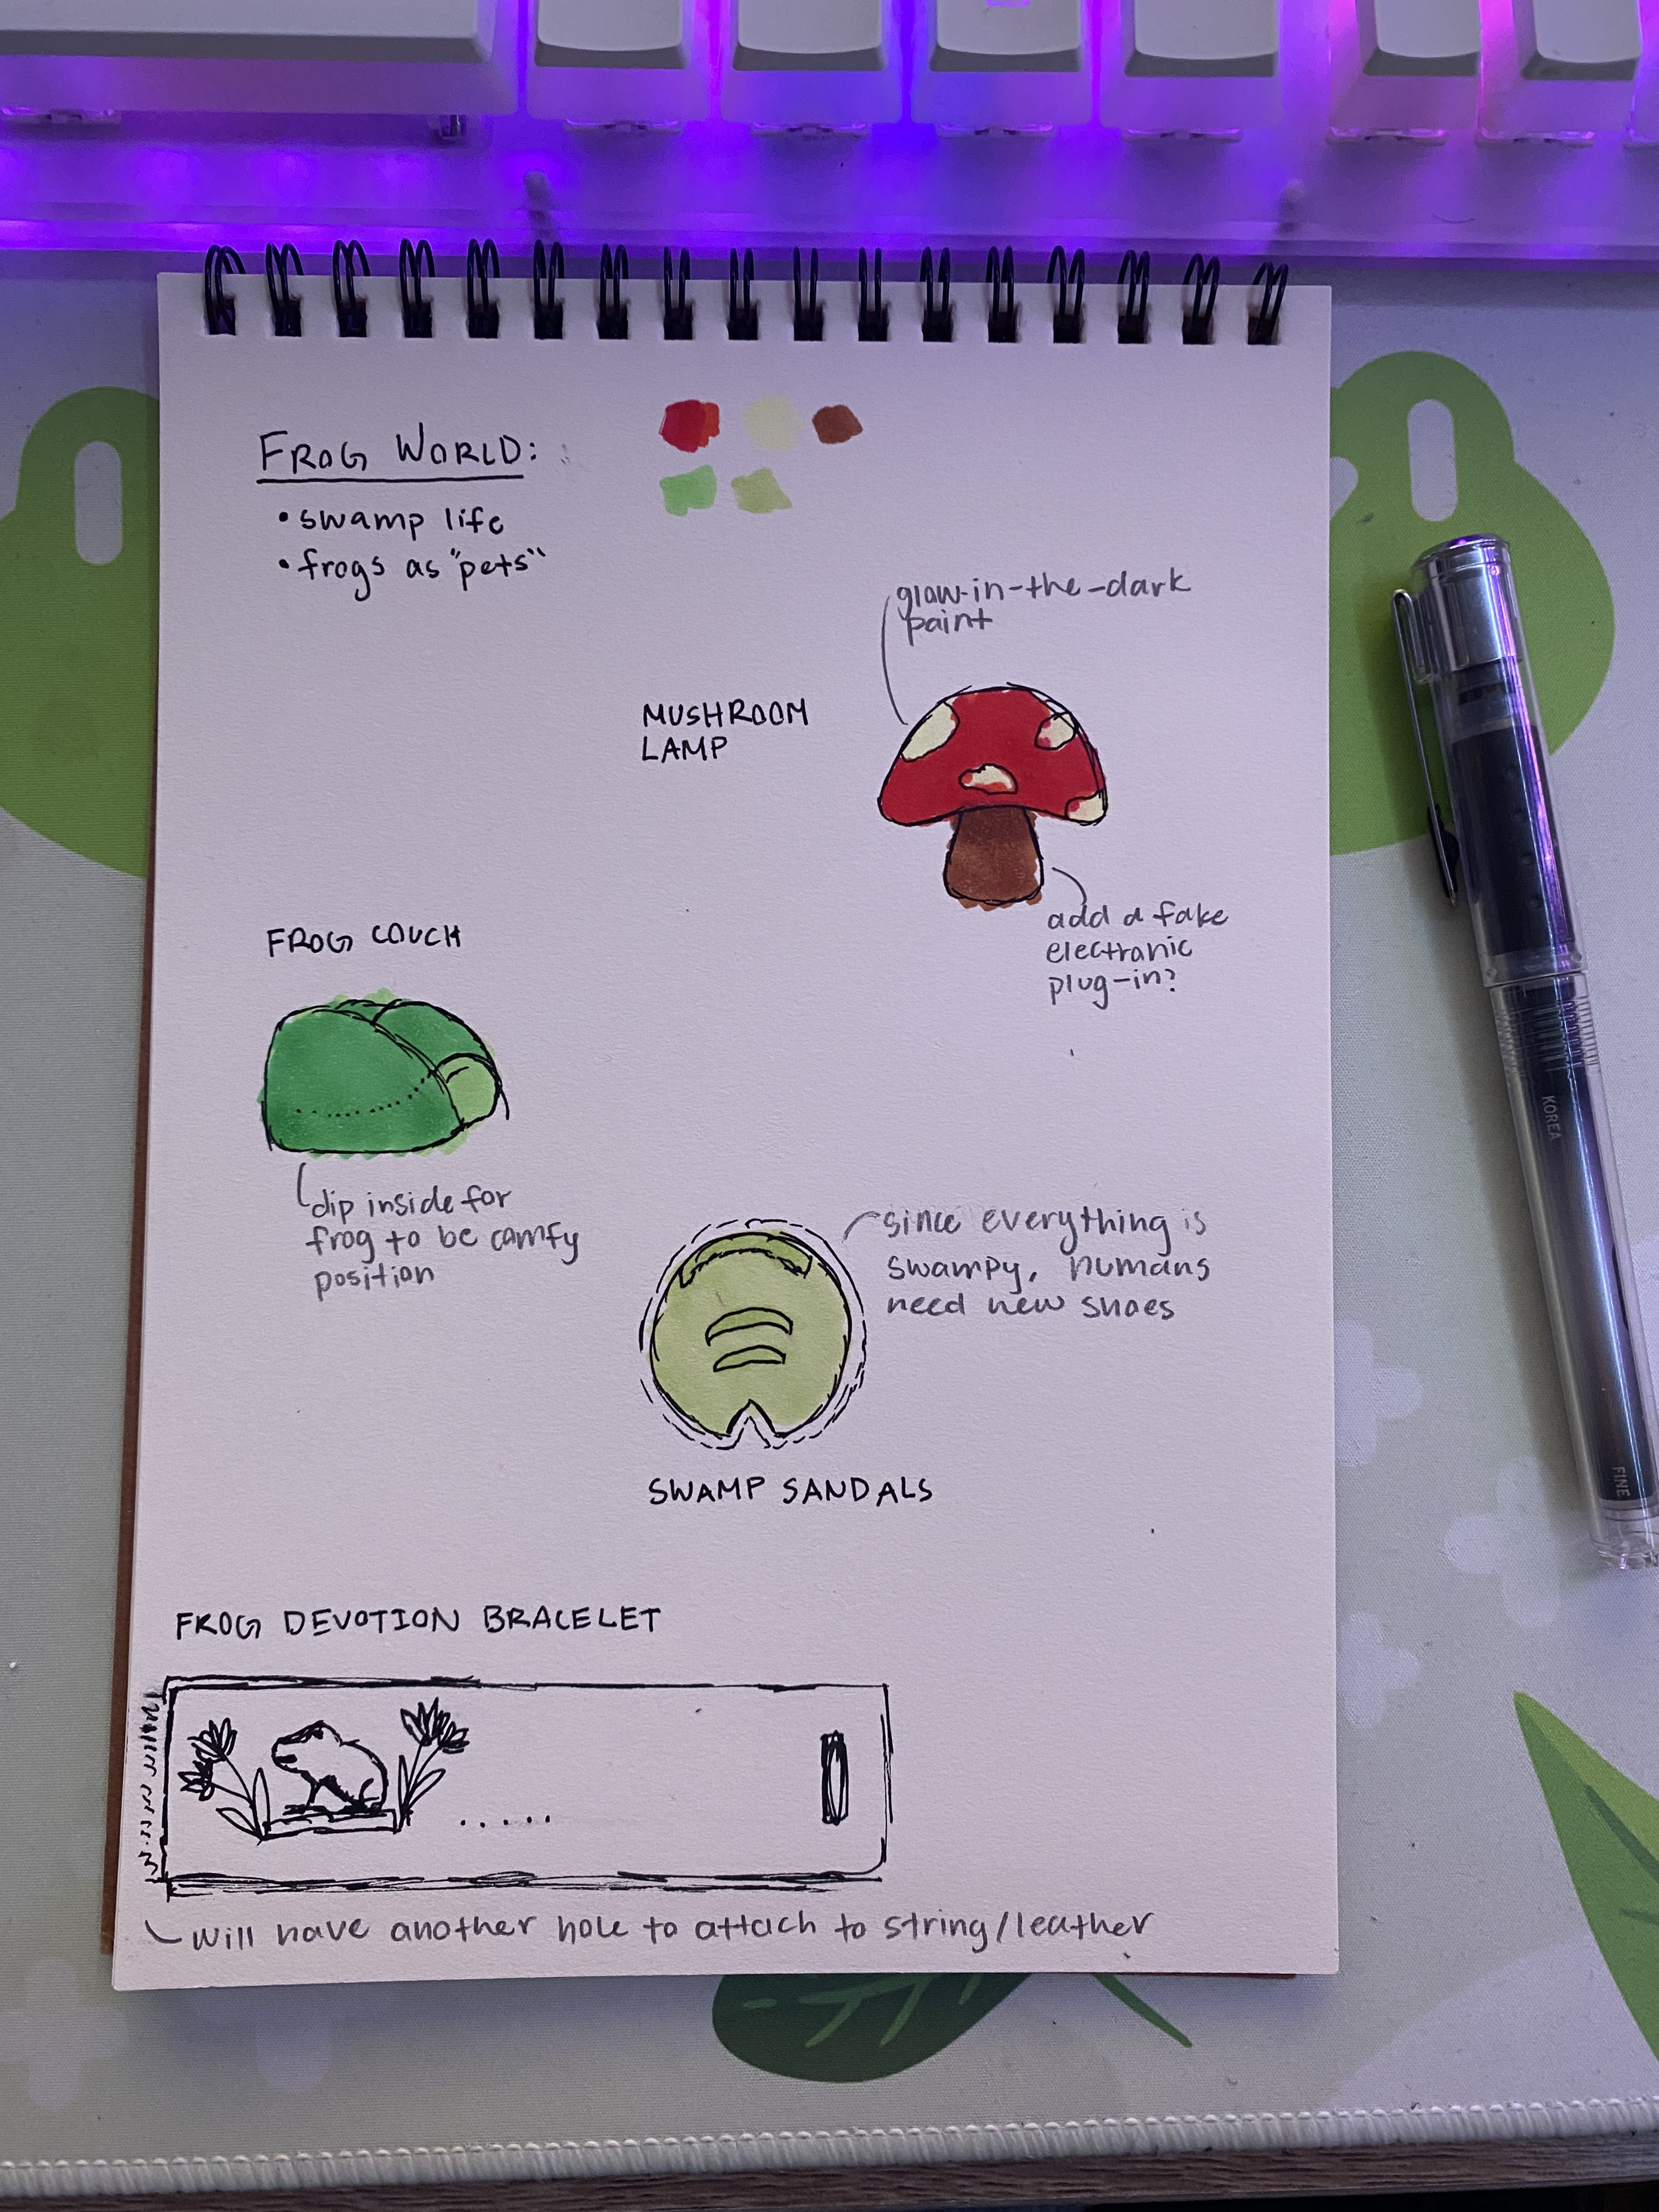 FROG WORLD:
• swamp life
• frogs as "pets"
glow-in-the-dark
paint
MUSHROOM
LAMP
add a fake
electronic
plug-in?
FROG COUCH
dip inside for
frog to be comfy
position
since everything is
swampy, humans
need new shoes
SWAMP SANDALS
FROG DEVOTION BRACELET
will have another hole to attach to string/leather
KOREA
FINE